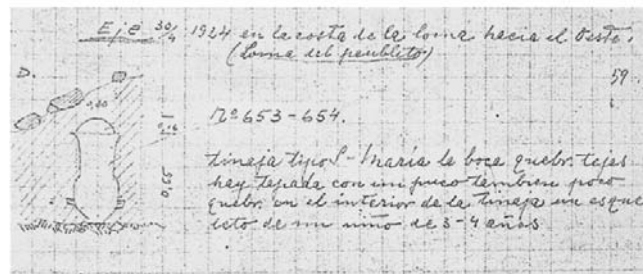 Eje 30/4 1924 en la costa de la loma hacia el Oeste.
(Loma del pueblito)
D.
59
0,30
Nº 653-654.
0,55
tinaja tipo S-María la boca quebr. tejas
hay tapada con un puco tambien poco
quebr. en el interior de la tinaja un esque
leto de un niño de 3-4 años